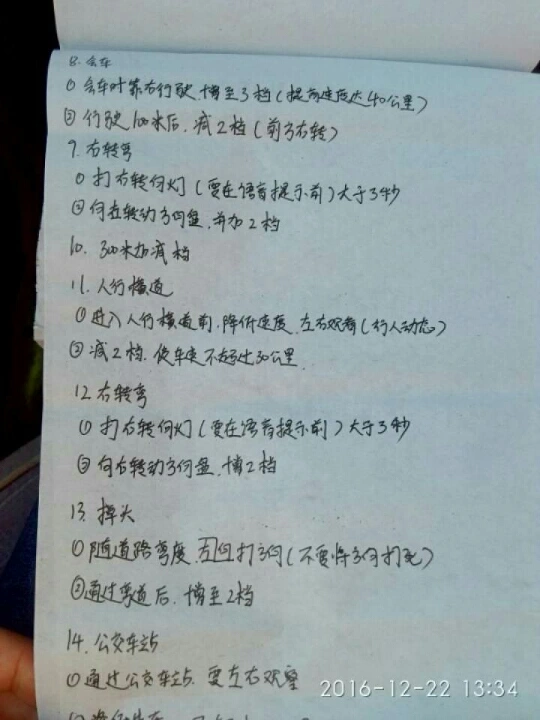 8. 会车
① 会车时靠右行驶,增至3档(提前速度达40公里)
② 行驶100米后,减2档(前方右转)
9. 右转弯
① 打右转向灯(要在语音提示前)大于3秒
② 向右转动方向盘,并加2档
10. 300米加减档
11. 人行横道
① 进入人行横道前,降低速度,左右观看(行人动态)
② 减2档,使车速不超过30公里.
12. 右转弯
① 打右转向灯(要在语音提示前)大于3秒
② 向右转动方向盘,增2档
13. 掉头
① 随道路弯度,左向打方向(不要将方向打死)
② 通过弯道后,增至2档
14. 公交车站
① 通过公交车站,要左右观望
2016-12-22 13:34